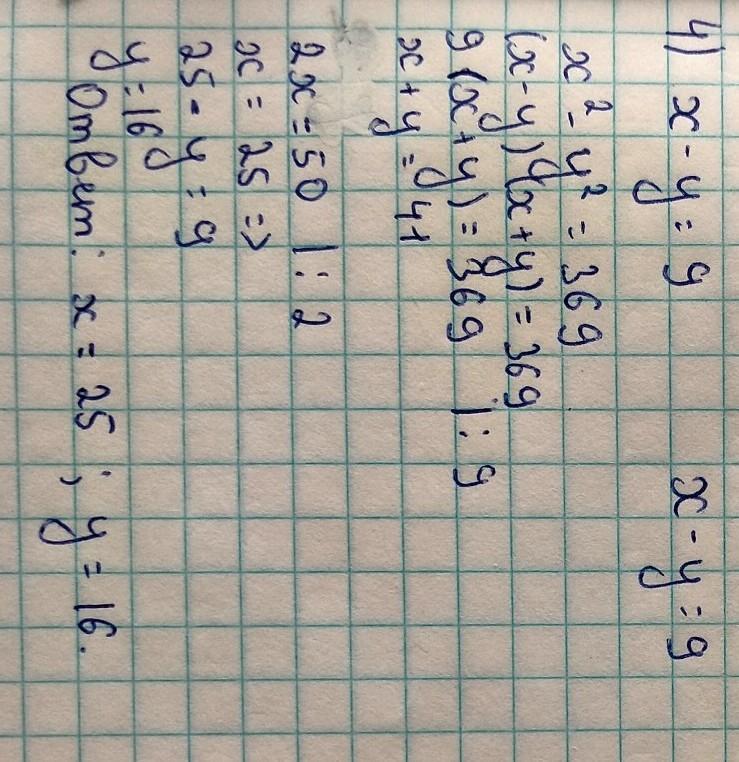 4) x - y = 9 x - y = 9
x² - y² = 369
(x - y)(x + y) = 369
9(x + y) = 369 |: 9
x + y = 41
2x = 50 |: 2
x = 25 =>
25 - y = 9
y = 16
Ответ: x = 25; y = 16.